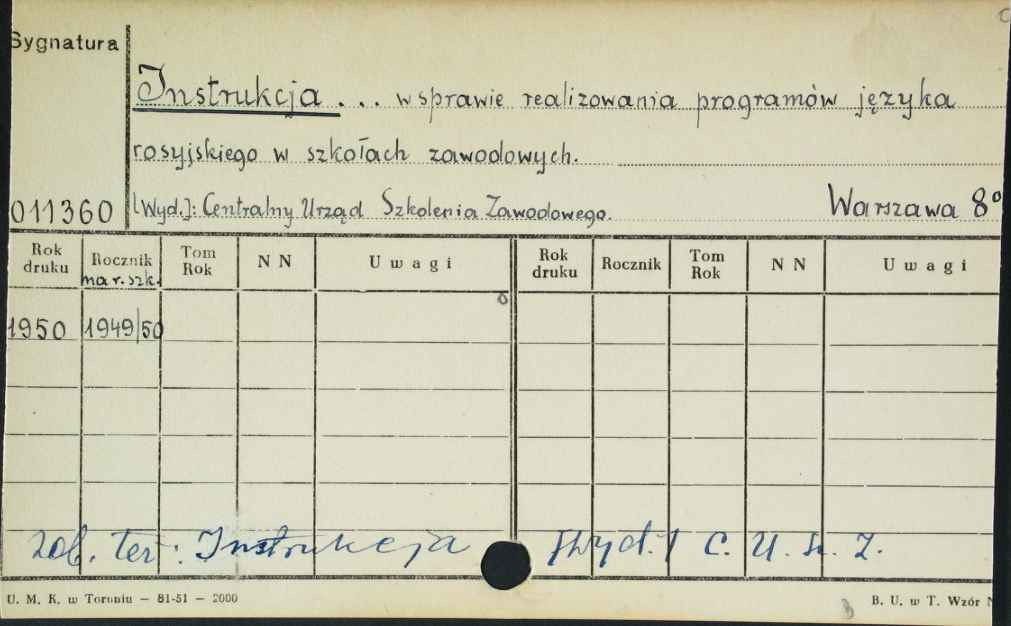 Sygnatura
Instrukcja ... wsprawie realizowania programów języka
rosyjskiego w szkołach zawodowych.
011360 [Wyd.]: Centralny Urząd Szkolenia Zawodowego. Warszawa 8°
Rok druku Rocznik na r. szk. Tom Rok N N Uwagi Rok druku Rocznik Tom Rok N N Uwagi
1950 1949/50
zob. też: Instrukcja [Wyd.] C. U. Sz. Z.
U. M. K. w Toruniu — 81-51 — 2000 B. U. w T. Wzór